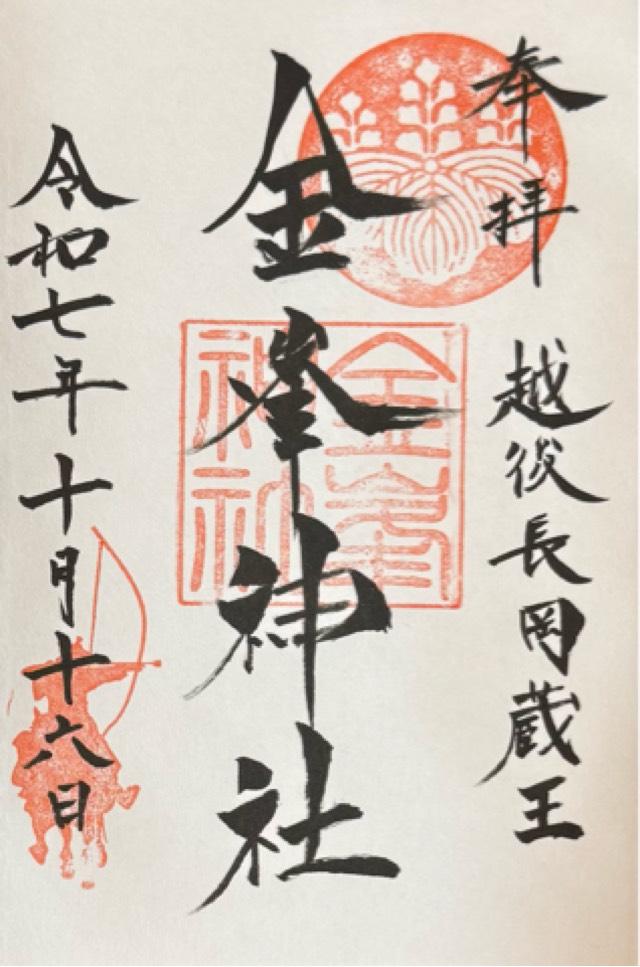 奉拝
越後長岡蔵王
金峯神社
金峯神社
令和七年十月十六日